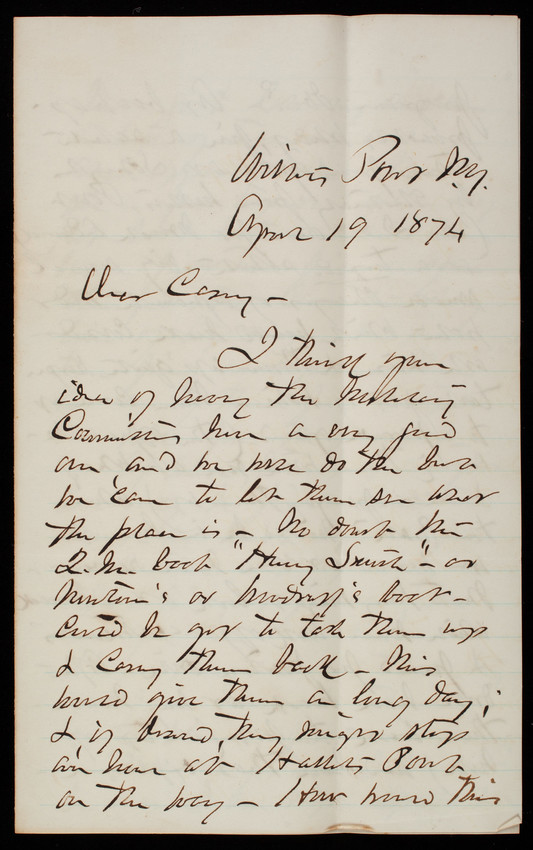 Willets Point N.Y.
April 19 1874
Dear Casey -
I think your
idea of having the Military
Committee here a very good
one and we will do the best
we can to let them see what
the place is - No doubt the
Q.M. boat "Henry Smith" - or
Newton's or boat -
could be got to take them up
& carry them back - This
would give them a long day;
& if desired, they might stop
an hour at Hallets Point
on the way - How would this